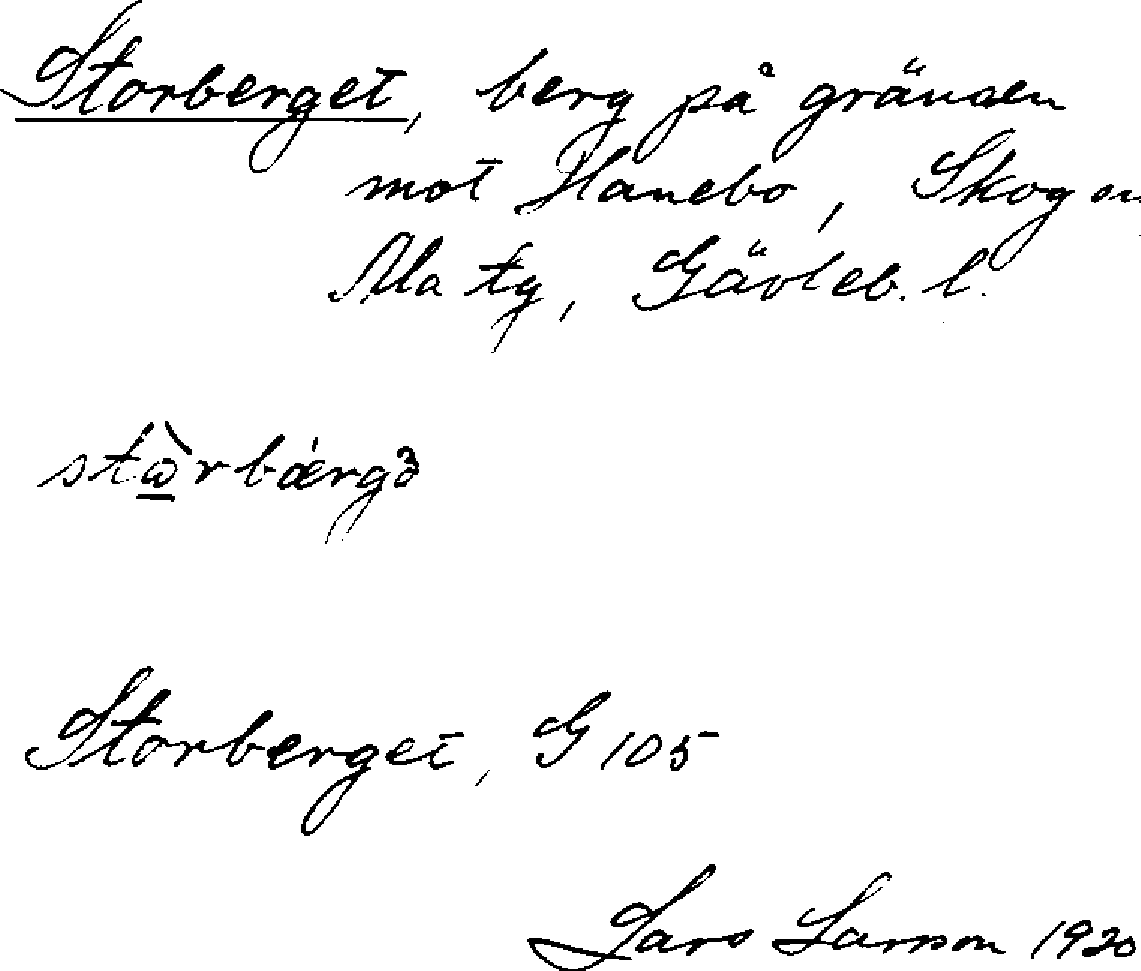 Storberget, berg på gränden
mot Hanebo, Skog sn
Ala tg, Gävleb. l.
stὼ̲rbǽrgɜ
Storberget, G 105
Lars Larsson 1920